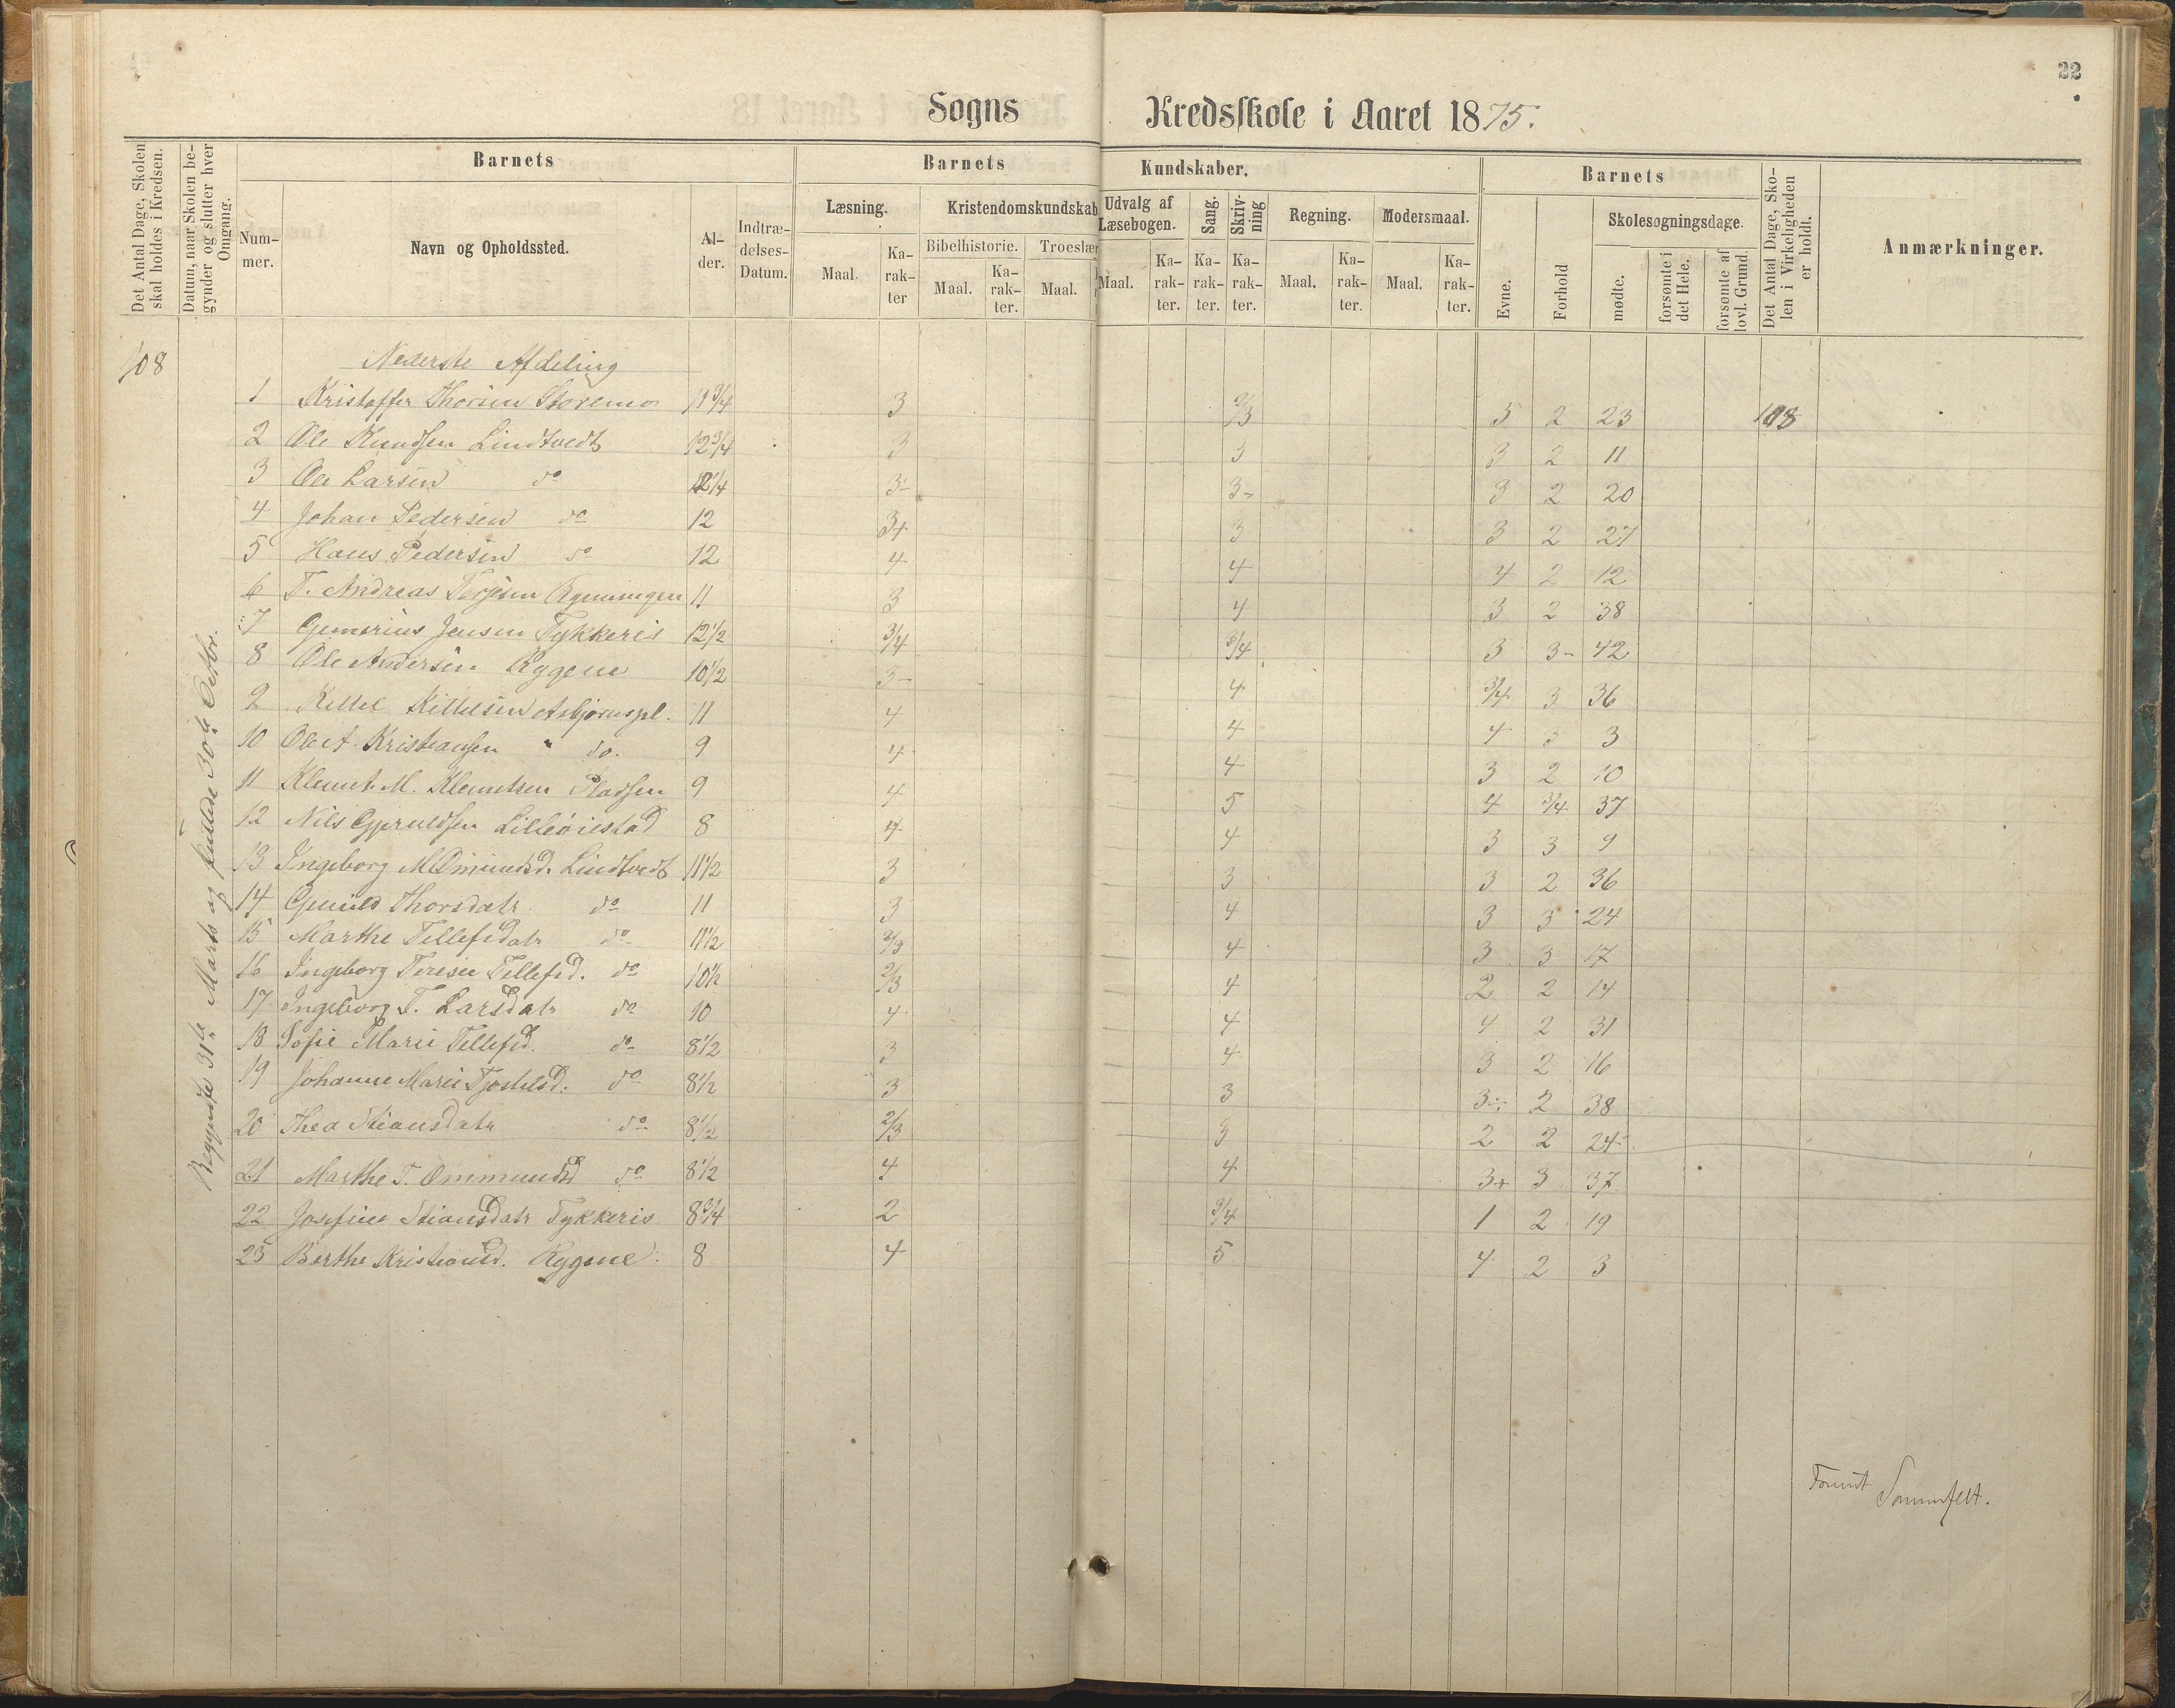 22
Sogns Kredsskole i Aaret 1875.
Det Antal Dage, Skolen skal holdes i Kredsen.
Datum, naar Skolen begynder og slutter hver Omgang.
Barnets
Nummer.
Navn og Opholdssted.
Alder.
Indtrædelses-Datum.
Barnets Kundskaber.
Læsning.
Maal.
Karakter
Kristendomskundskab
Bibelhistorie.
Maal.
Karakter.
Troeslær
Maal.
Udvalg af Læsebogen.
Maal.
Karakter.
Sang.
Karakter.
Skrivning
Karakter.
Regning.
Maal.
Karakter.
Modersmaal.
Maal.
Karakter.
Barnets
Evne.
Forhold
Skolesøgningsdage.
mødte.
forsømte i det Hele.
forsømte af lovl. Grund.
Det Antal Dage, Skolen i Virkeligheden er holdt.
Anmærkninger.
108
Begyndte 31te Marts og sluttede 30te Octbr.
Nederste Afdeling
1 Kristoffer Thorsen Storemo 11 3/4 3 2/3 3 2 23 108
2 Ole Knudsen Lindtvedt 12 3/4 3 3 3 2 11
3 Ole Larsen do 12 1/4 3- 3- 3 2 20
4 Johan Pedersen do 12 3+ 3 3 2 27
5 Hans Pedersen do 12 4 4 4 2 12
6 T. Andreas Terjesen 11 3 4 3 2 38
7 Jensen Tykkeris 12 1/2 3/4 3/4 3 3- 42
8 Ole Andersen Rygene 10 1/2 3- 4 3/4 3 36
9 Kittel Kittelsen Asbjørnspl. 11 4 4 4 3 3
10 Ole A. Kristiansen " do. 9 4 4 3 2 10
11 Klemet M. Klemetsen Pladsen 9 4 5 4 3/4 37
12 Nils Gjeruldsen Lilleøiestad 8 4 4 3 3 9
13 Ingeborg M Omundsd. Lindtvedt 11 1/2 3 3 3 2 36
14 Gunild Thorsdatr do 11 3 4 3 3 24
15 Marthe Tellefsdatr do 11 1/2 2/3 4 3 3 17
16 Ingeborg Teresie Tellefsd. do 10 1/2 2/3 4 2 2 14
17 Ingeborg T. Larsdatr do 10 4 4 4 2 31
18 Sofie Marie Tellefsd. do 8 1/2 3 4 3 2 16
19 Johanne Marie Tjostelsd. do 8 1/2 3 3 3÷ 2 38
20 Thea Stiansdatr do 8 1/2 2/3 3 2 2 24
21 Marthe T. Ommundsd do 8 1/2 4 4 3+ 3 37
22 Josefine Stiansdatr Tykkeris 8 3/4 2 3/4 1 2 19
23 Berthe Kristiansd. Rygene 8 4 5 4 2 3
Sommfelt.